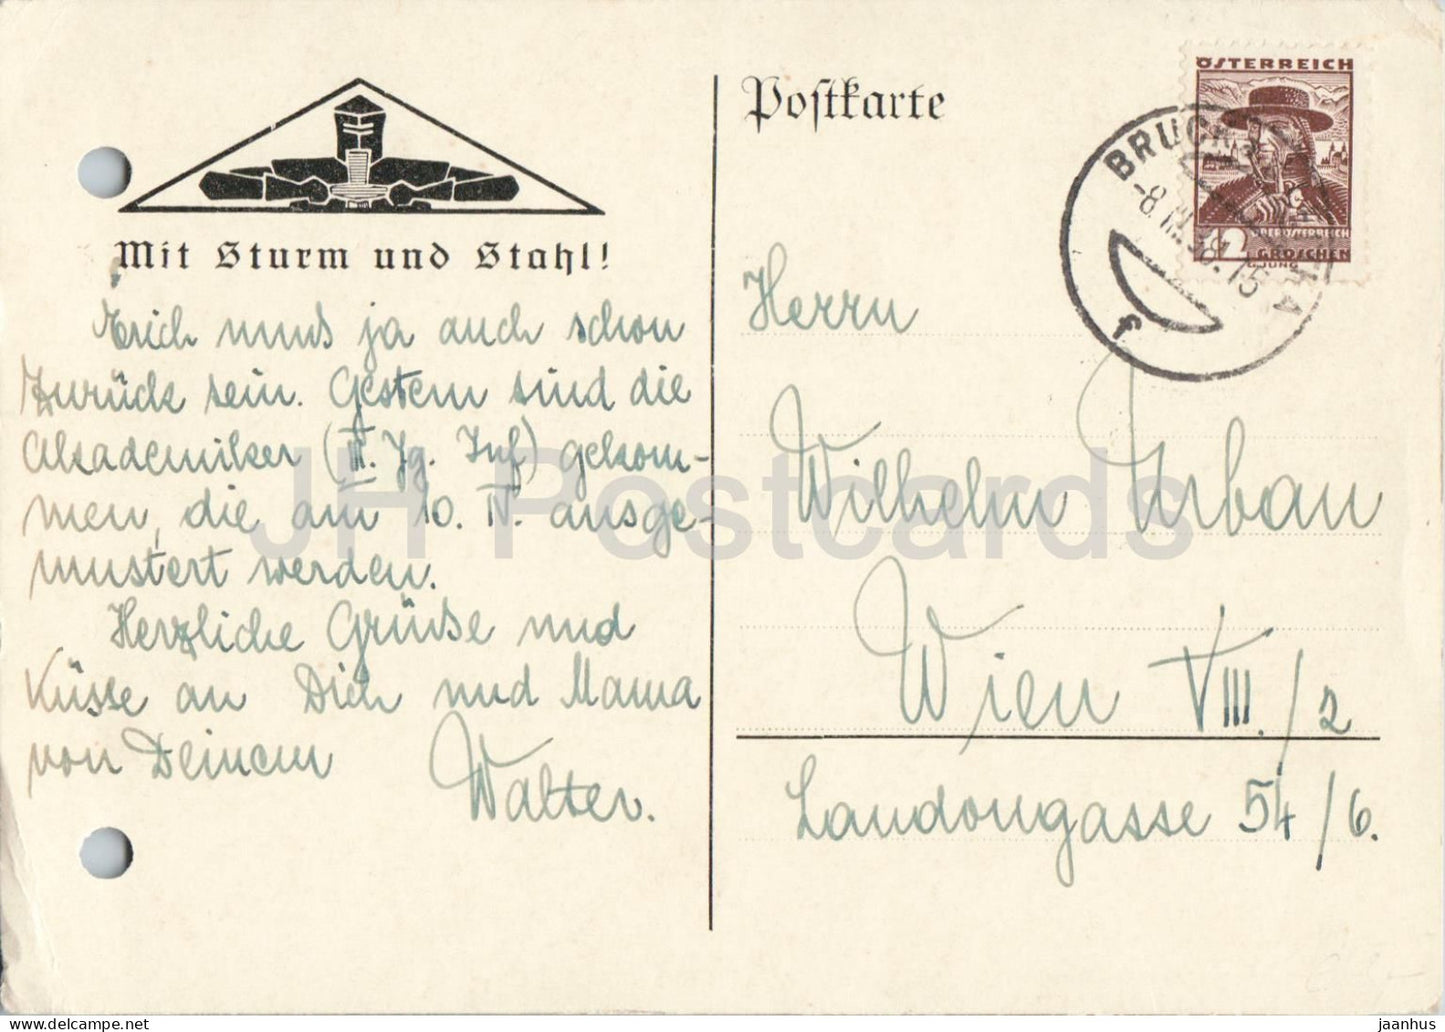 Postkarte
ÖSTERREICH
12
OBERÖSTERREICH
GROSCHEN
BRUCK
-8.III.38.15
f
Mit Sturm und Stahl!
Erich muß ja auch schon
zurück sein. Gestern sind die
Akademiker (III. Jg. Inf) gekom-
men, die am 10. IV. ausge-
mustert werden.
Herzliche Grüße und
Küsse an Dich und Mama
von Deinem
Walter.
Herrn
Wilhelm Urban
Wien VIII./2
Laudongasse 54/6.
JH Postcards
jaanhus
www.delcampe.net